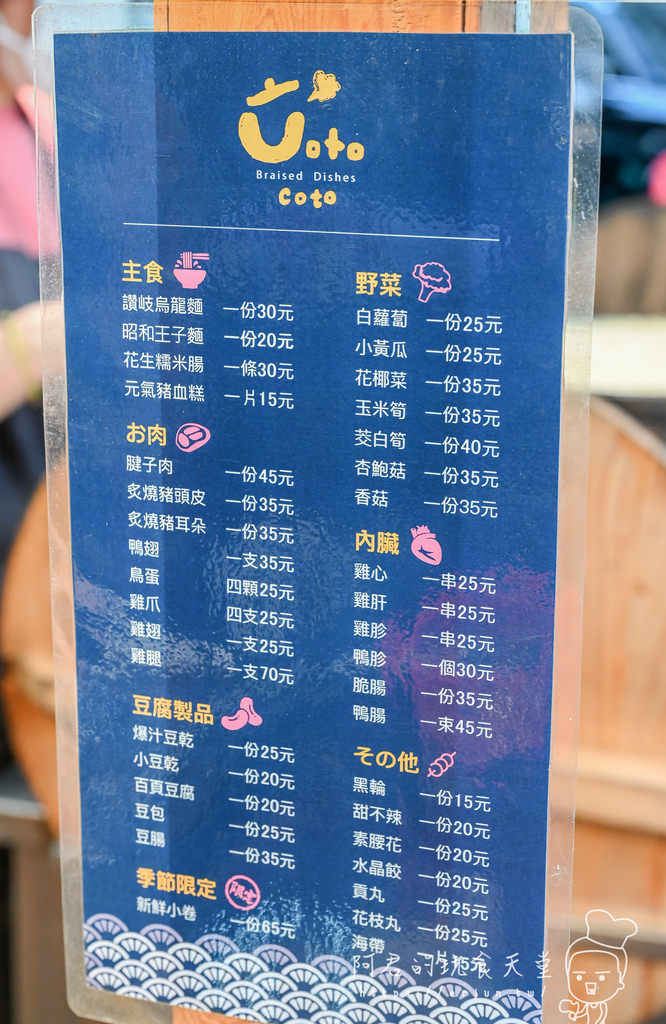 Coto
Braised Dishes
coto
主食
讚岐烏龍麵 一份30元
昭和王子麵 一份20元
花生糯米腸 一條30元
元氣豬血糕 一片15元
お肉
腱子肉 一份45元
炙燒豬頭皮 一份35元
炙燒豬耳朵 一份35元
鴨翅 一支35元
鳥蛋 四顆25元
雞爪 四支25元
雞翅 一支25元
雞腿 一支70元
豆腐製品
爆汁豆乾 一份25元
小豆乾 一份20元
百頁豆腐 一份20元
豆包 一份25元
豆腸 一份35元
季節限定 限定
新鮮小卷 一份65元
野菜
白蘿蔔 一份25元
小黃瓜 一份25元
花椰菜 一份35元
玉米筍 一份35元
茭白筍 一份40元
杏鮑菇 一份35元
香菇 一份35元
內臟
雞心 一串25元
雞肝 一串25元
雞胗 一串25元
鴨胗 一個30元
脆腸 一份35元
鴨腸 一束45元
その他
黑輪 一份15元
甜不辣 一份20元
素腰花 一份20元
水晶餃 一份20元
貢丸 一份25元
花枝丸 一份25元
海帶
阿君的玩食天堂